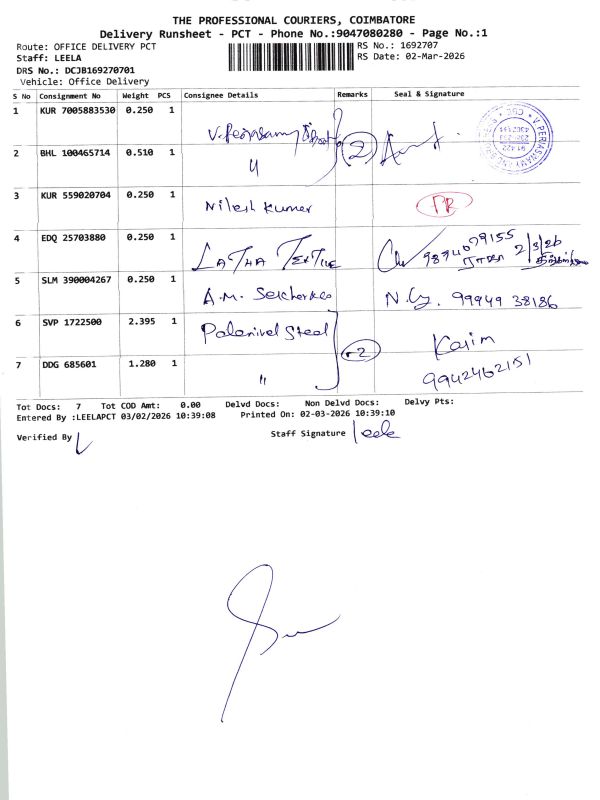 THE PROFESSIONAL COURIERS, COIMBATORE
Delivery Runsheet - PCT - Phone No.:9047080280 - Page No.:1
Route: OFFICE DELIVERY PCT
RS No.: 1692707
Staff: LEELA
RS Date: 02-Mar-2026
DRS No.: DCJB169270701
Vehicle: Office Delivery
S No Consignment No Weight PCS Consignee Details Remarks Seal & Signature
1 KUR 7005883530 0.250 1 V.
2 BHL 100465714 0.510 1 〃 2
V. PERIASNAMY
3 KUR 559020704 0.250 1 Nilesh Kumer PR
4 EDQ 25703880 0.250 1 LATHA TEXTILE 9874079155 2/3/26
5 SLM 390004267 0.250 1 A.M. N. 99949 38186
6 SVP 1722500 2.395 1 Palanivel Steel 2 Karim
7 DDG 685601 1.280 1 〃 9942462151
Tot Docs: 7 Tot COD Amt: 0.00 Delvd Docs: Non Delvd Docs: Delvy Pts:
Entered By :LEELAPCT 03/02/2026 10:39:08 Printed On: 02-03-2026 10:39:10
Verified By Staff Signature Leela